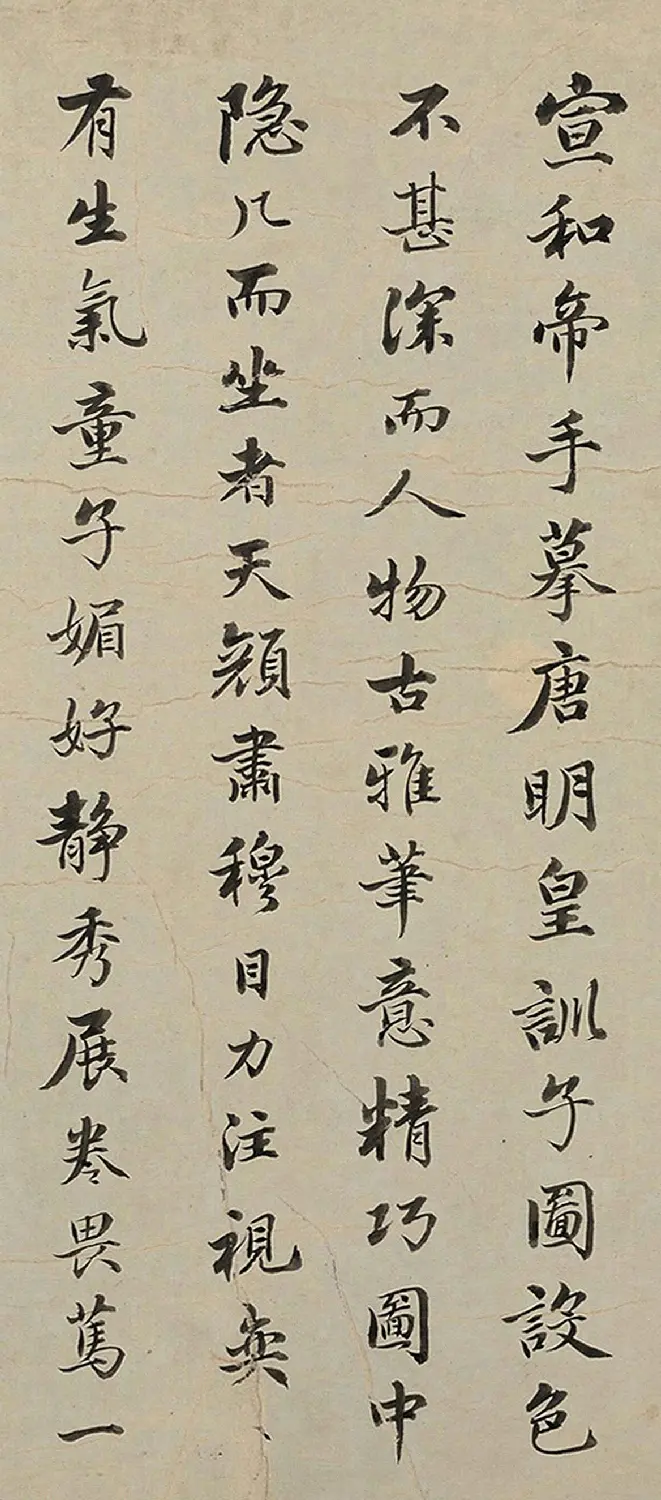 宣和帝手摹唐明皇訓子圖設色
不甚深而人物古雅筆意精巧圖中
隐几而坐者天顔肅穆目力注視奕〻
有生氣童子媚好静秀展卷畏萬一